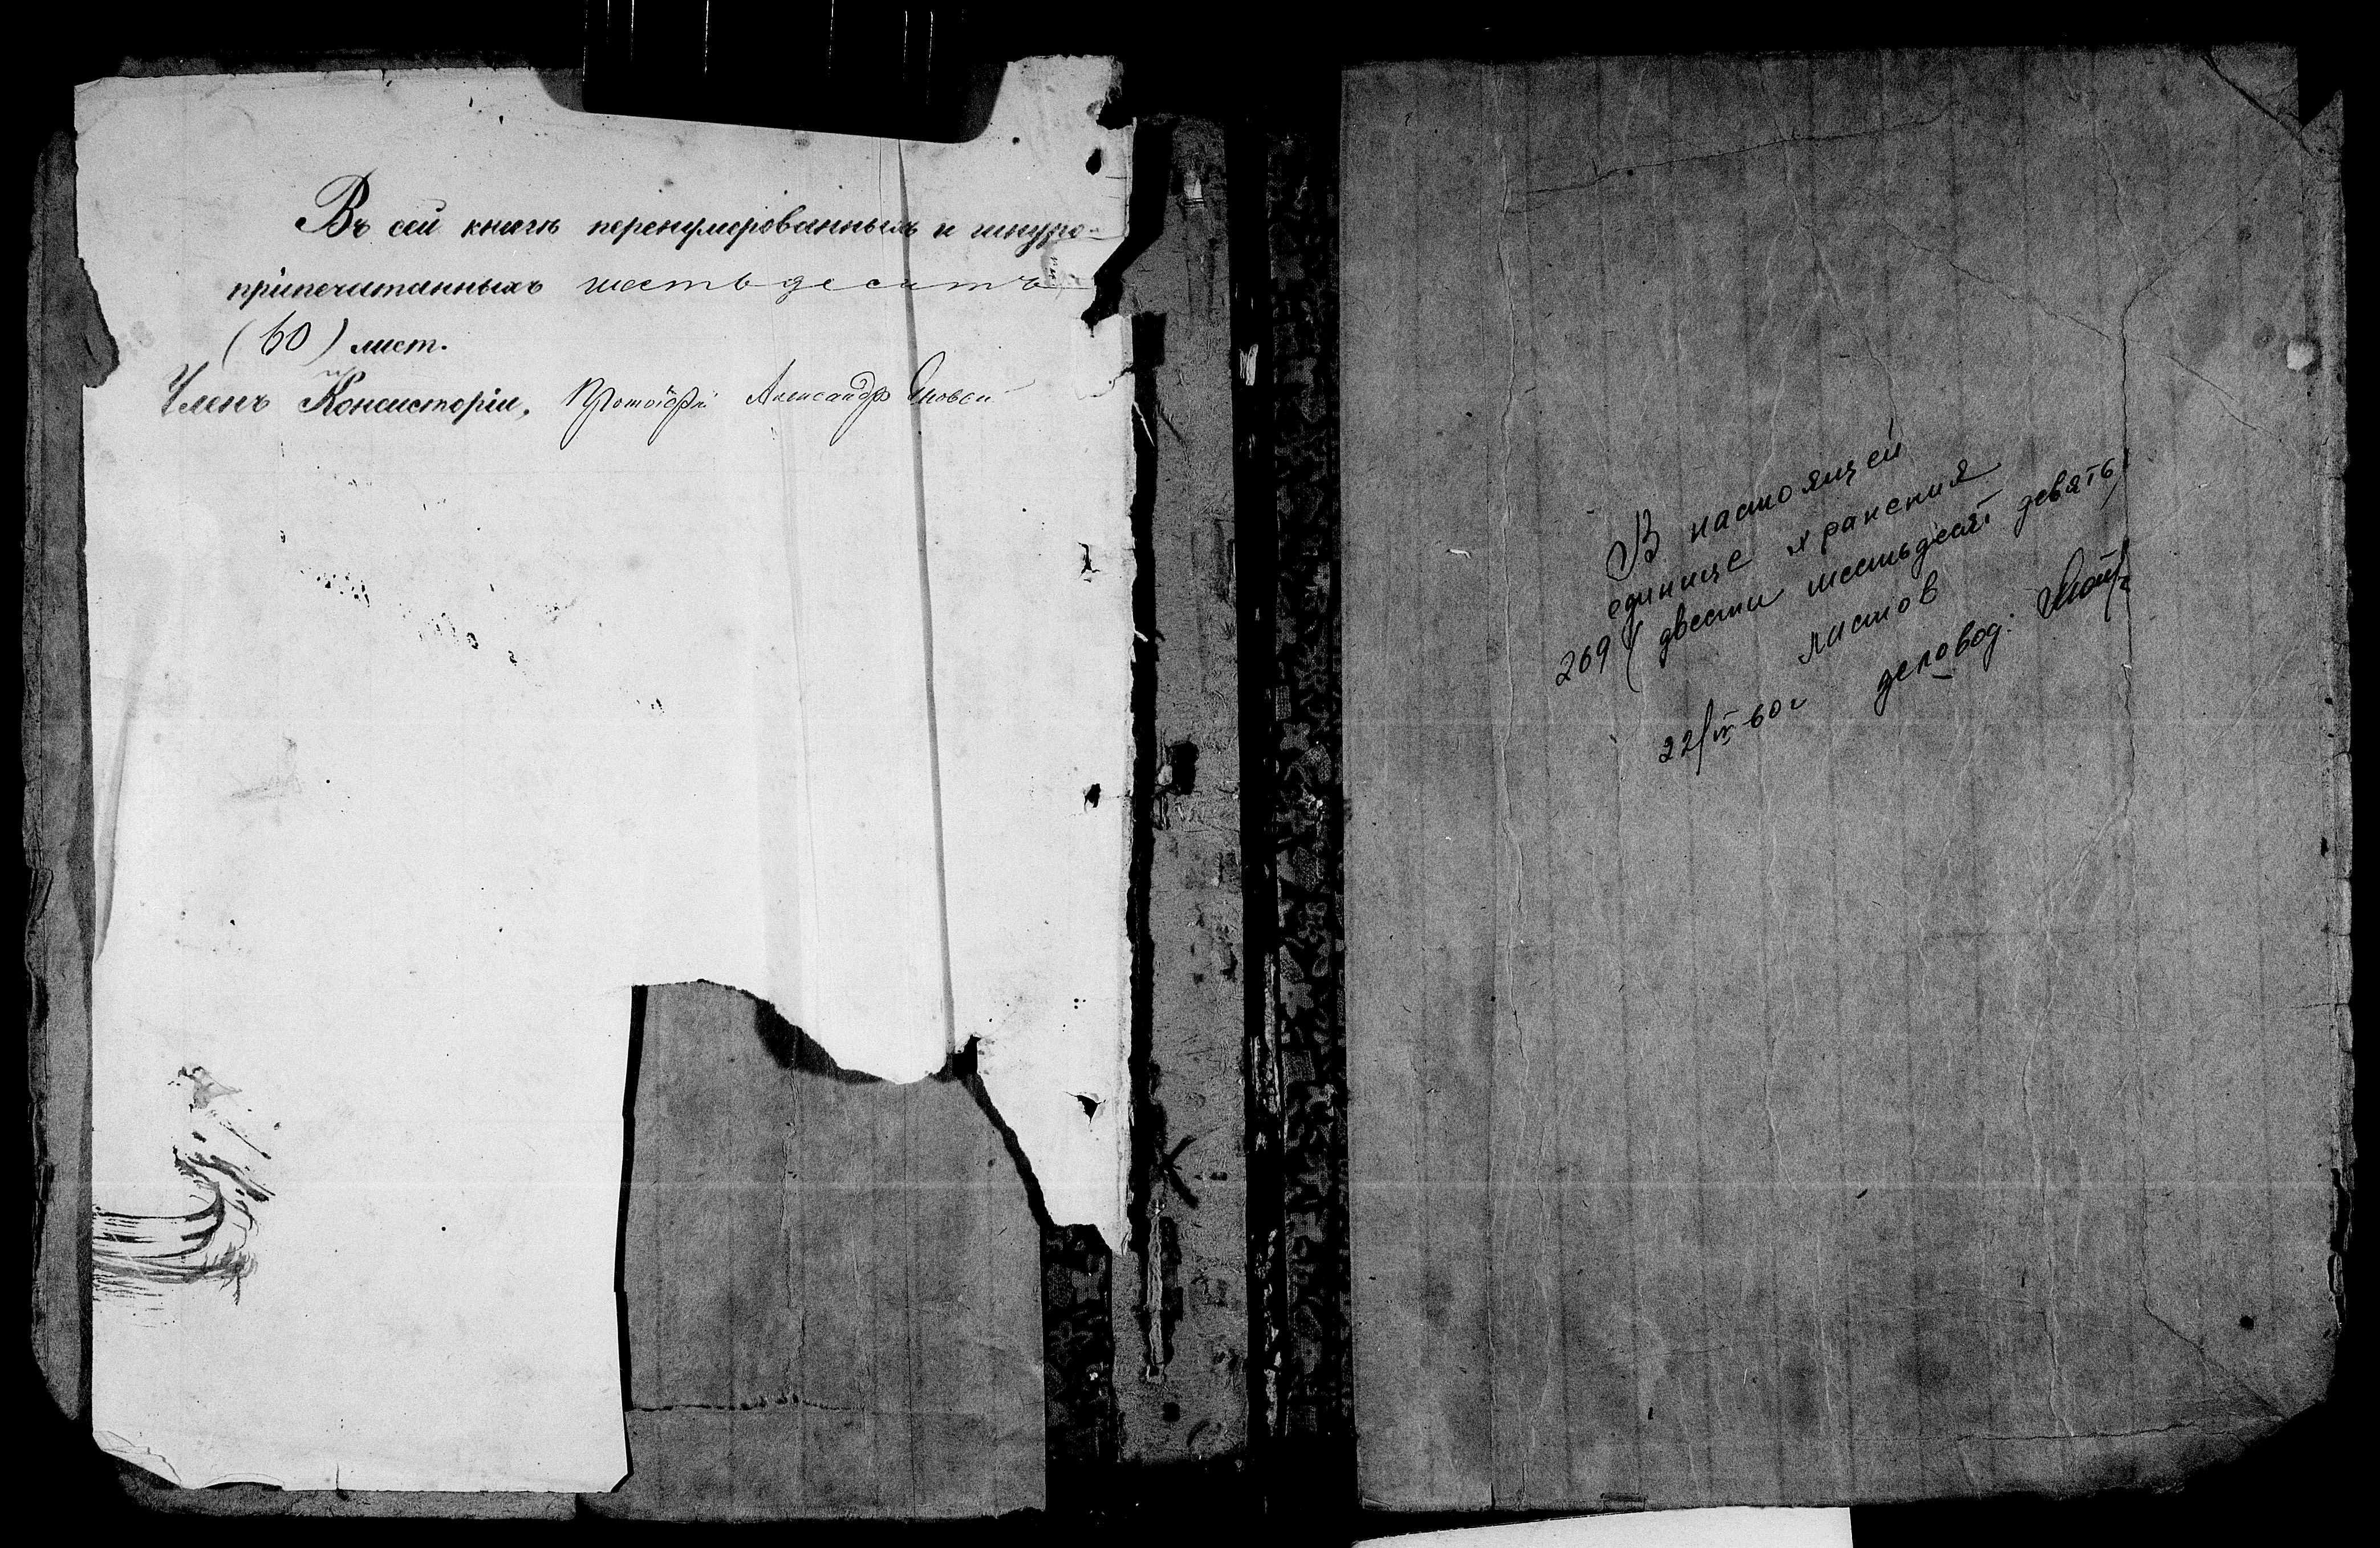 Въ сей книгѣ перенумерованныхъ и шнуро-
припечатанныхъ шестьдесятъ
(60) лист.
Членъ Консисторіи, Александръ
В настоящей
единице хранения
269 (двести шестьдесят девять)
листов
22/IV-60 г деловод: